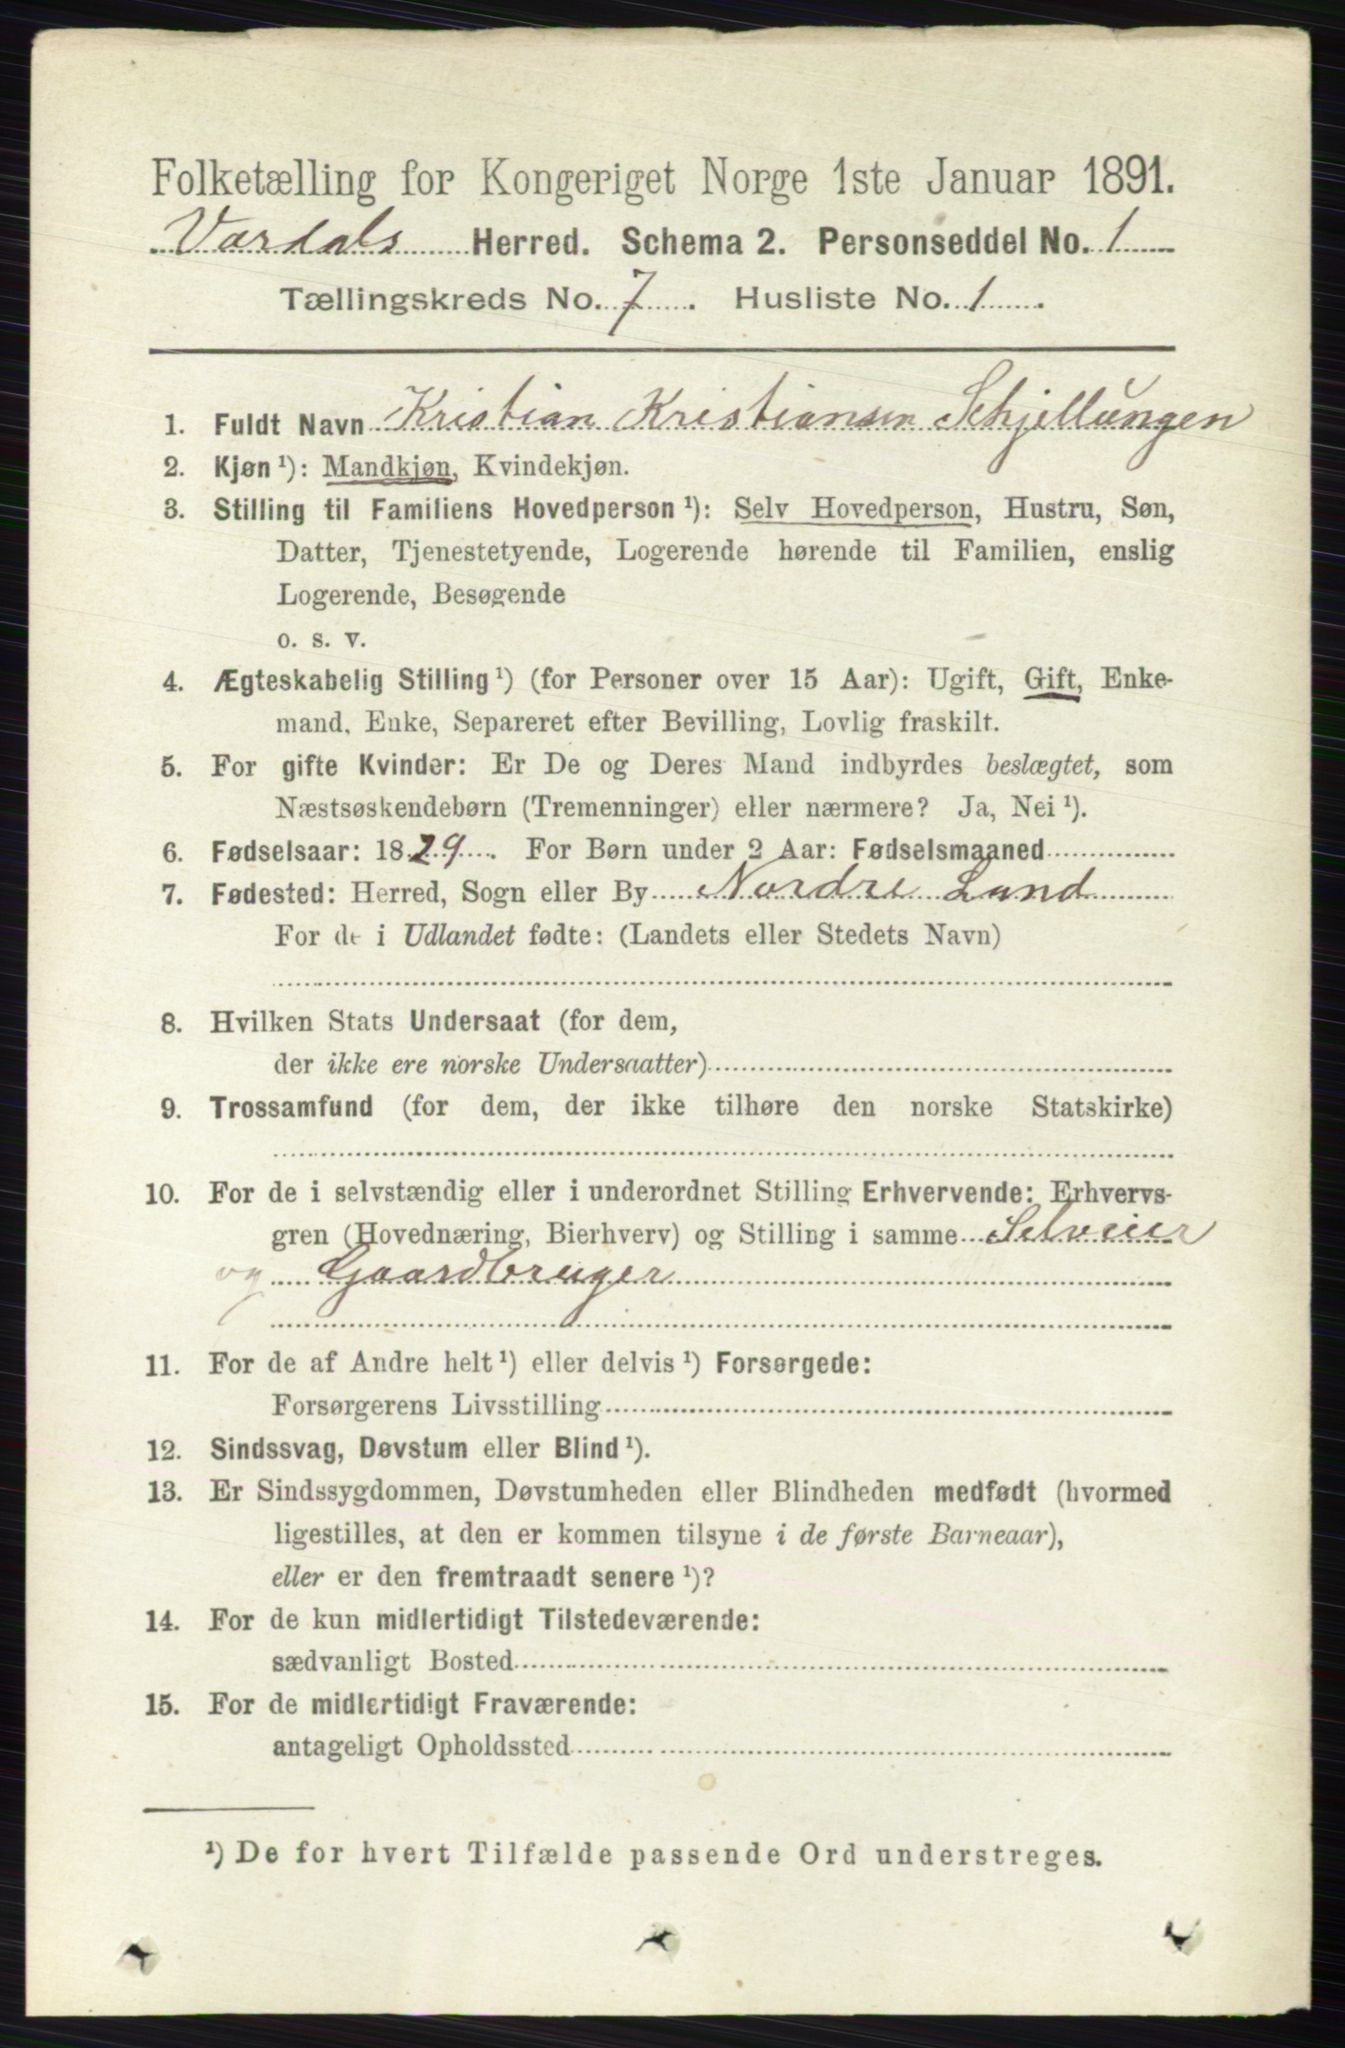 Folketælling for Kongeriget Norge 1ste Januar 1891.
Vardals Herred. Schema 2. Personseddel No. 1
Tællingskreds No. 7. Husliste No. 1.
1. Fuldt Navn Kristian Kristiansen Schjellungen
2. Kjøn ¹): Mandkjøn, Kvindekjøn.
3. Stilling til Familiens Hovedperson ¹): Selv Hovedperson, Hustru, Søn,
Datter, Tjenestetyende, Logerende hørende til Familien, enslig
Logerende, Besøgende
o. s. v.
4. Ægteskabelig Stilling ¹) (for Personer over 15 Aar): Ugift, Gift, Enke-
mand, Enke, Separeret efter Bevilling, Lovlig fraskilt.
5. For gifte Kvinder: Er De og Deres Mand indbyrdes beslægtet, som
Næstsøskendebørn (Tremenninger) eller nærmere? Ja, Nei ¹).
6. Fødselsaar: 1829. For Børn under 2 Aar: Fødselsmaaned
7. Fødested: Herred, Sogn eller By Nordre Land
For de i Udlandet fødte: (Landets eller Stedets Navn)
8. Hvilken Stats Undersaat (for dem,
der ikke ere norske Undersaatter)
9. Trossamfund (for dem, der ikke tilhøre den norske Statskirke)
10. For de i selvstændig eller i underordnet Stilling Erhvervende: Erhvervs-
gren (Hovednæring, Bierhverv) og Stilling i samme Selveier
og Gaardbruger
11. For de af Andre helt ¹) eller delvis ¹) Forsørgede:
Forsørgerens Livsstilling
12. Sindssvag, Døvstum eller Blind ¹).
13. Er Sindssygdommen, Døvstumheden eller Blindheden medfødt (hvormed
ligestilles, at den er kommen tilsyne i de første Barneaar),
eller er den fremtraadt senere ¹)?
14. For de kun midlertidigt Tilstedeværende:
sædvanligt Bosted
15. For de midlertidigt Fraværende:
antageligt Opholdssted
¹) De for hvert Tilfælde passende Ord understreges.